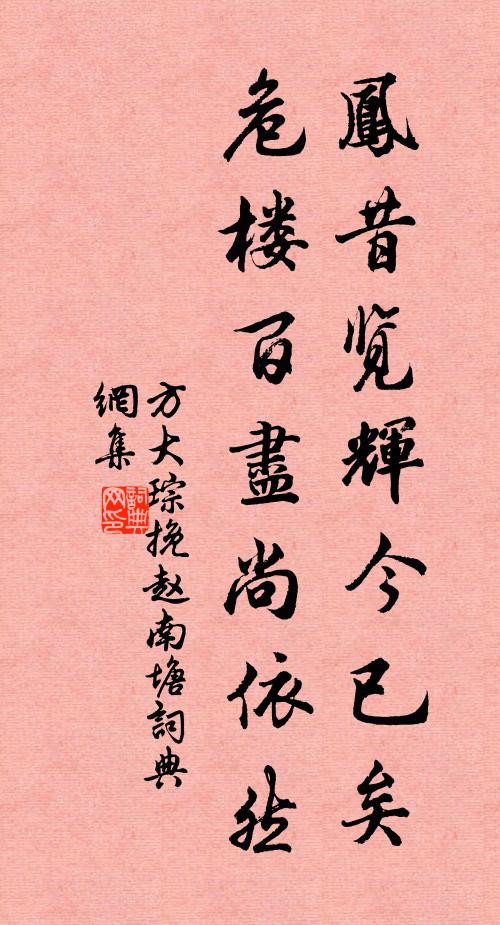 鳳昔览輝今已矣
危楼百盡尚依然
方大琮挽赵南塘詞典
網集
詞典网印